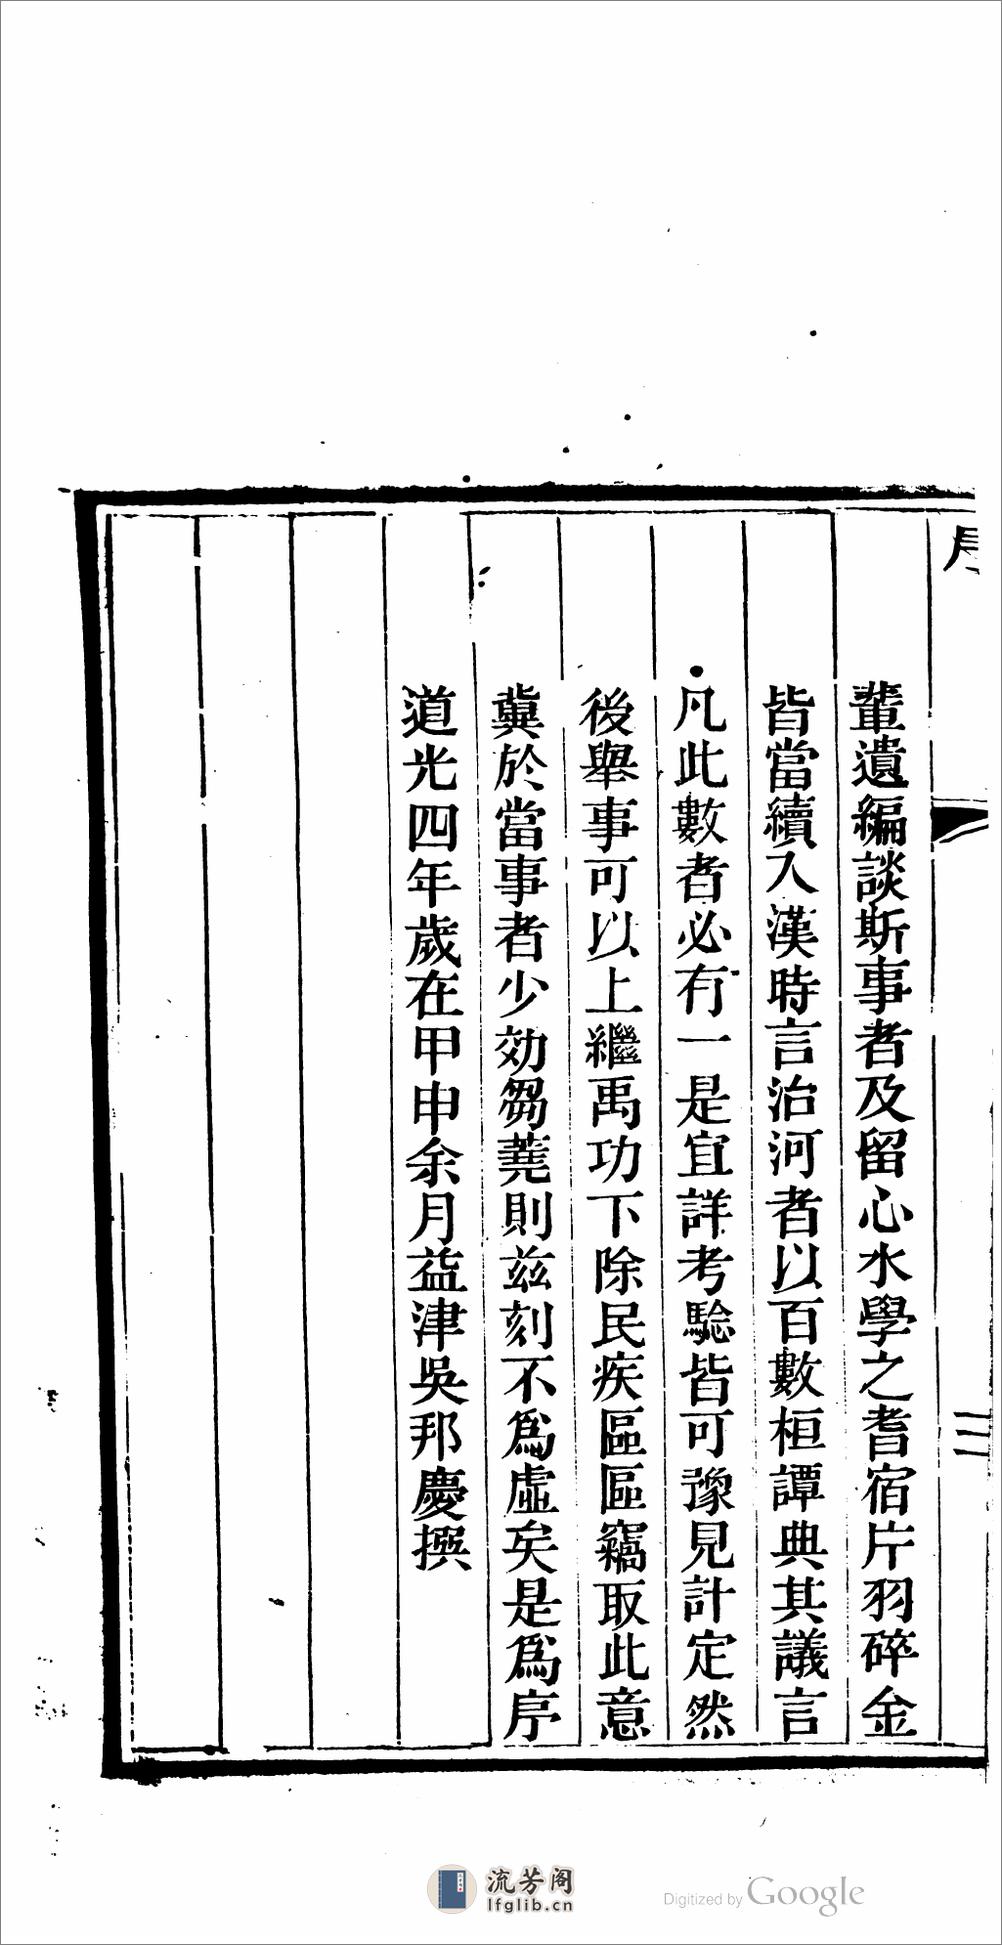 序
三
輩遺編談斯事者及留心水學之耆宿片羽碎金
皆當續入漢時言治河者以百數桓譚典其議言
凡此數者必有一是宜詳考驗皆可豫見計定然
後舉事可以上繼禹功下除民疾區區竊取此意
冀於當事者少効芻蕘則兹刻不爲虛矣是爲序
道光四年歲在甲申余月益津吳邦慶撰
流芳阁
lfglib.cn
Digitized by Google